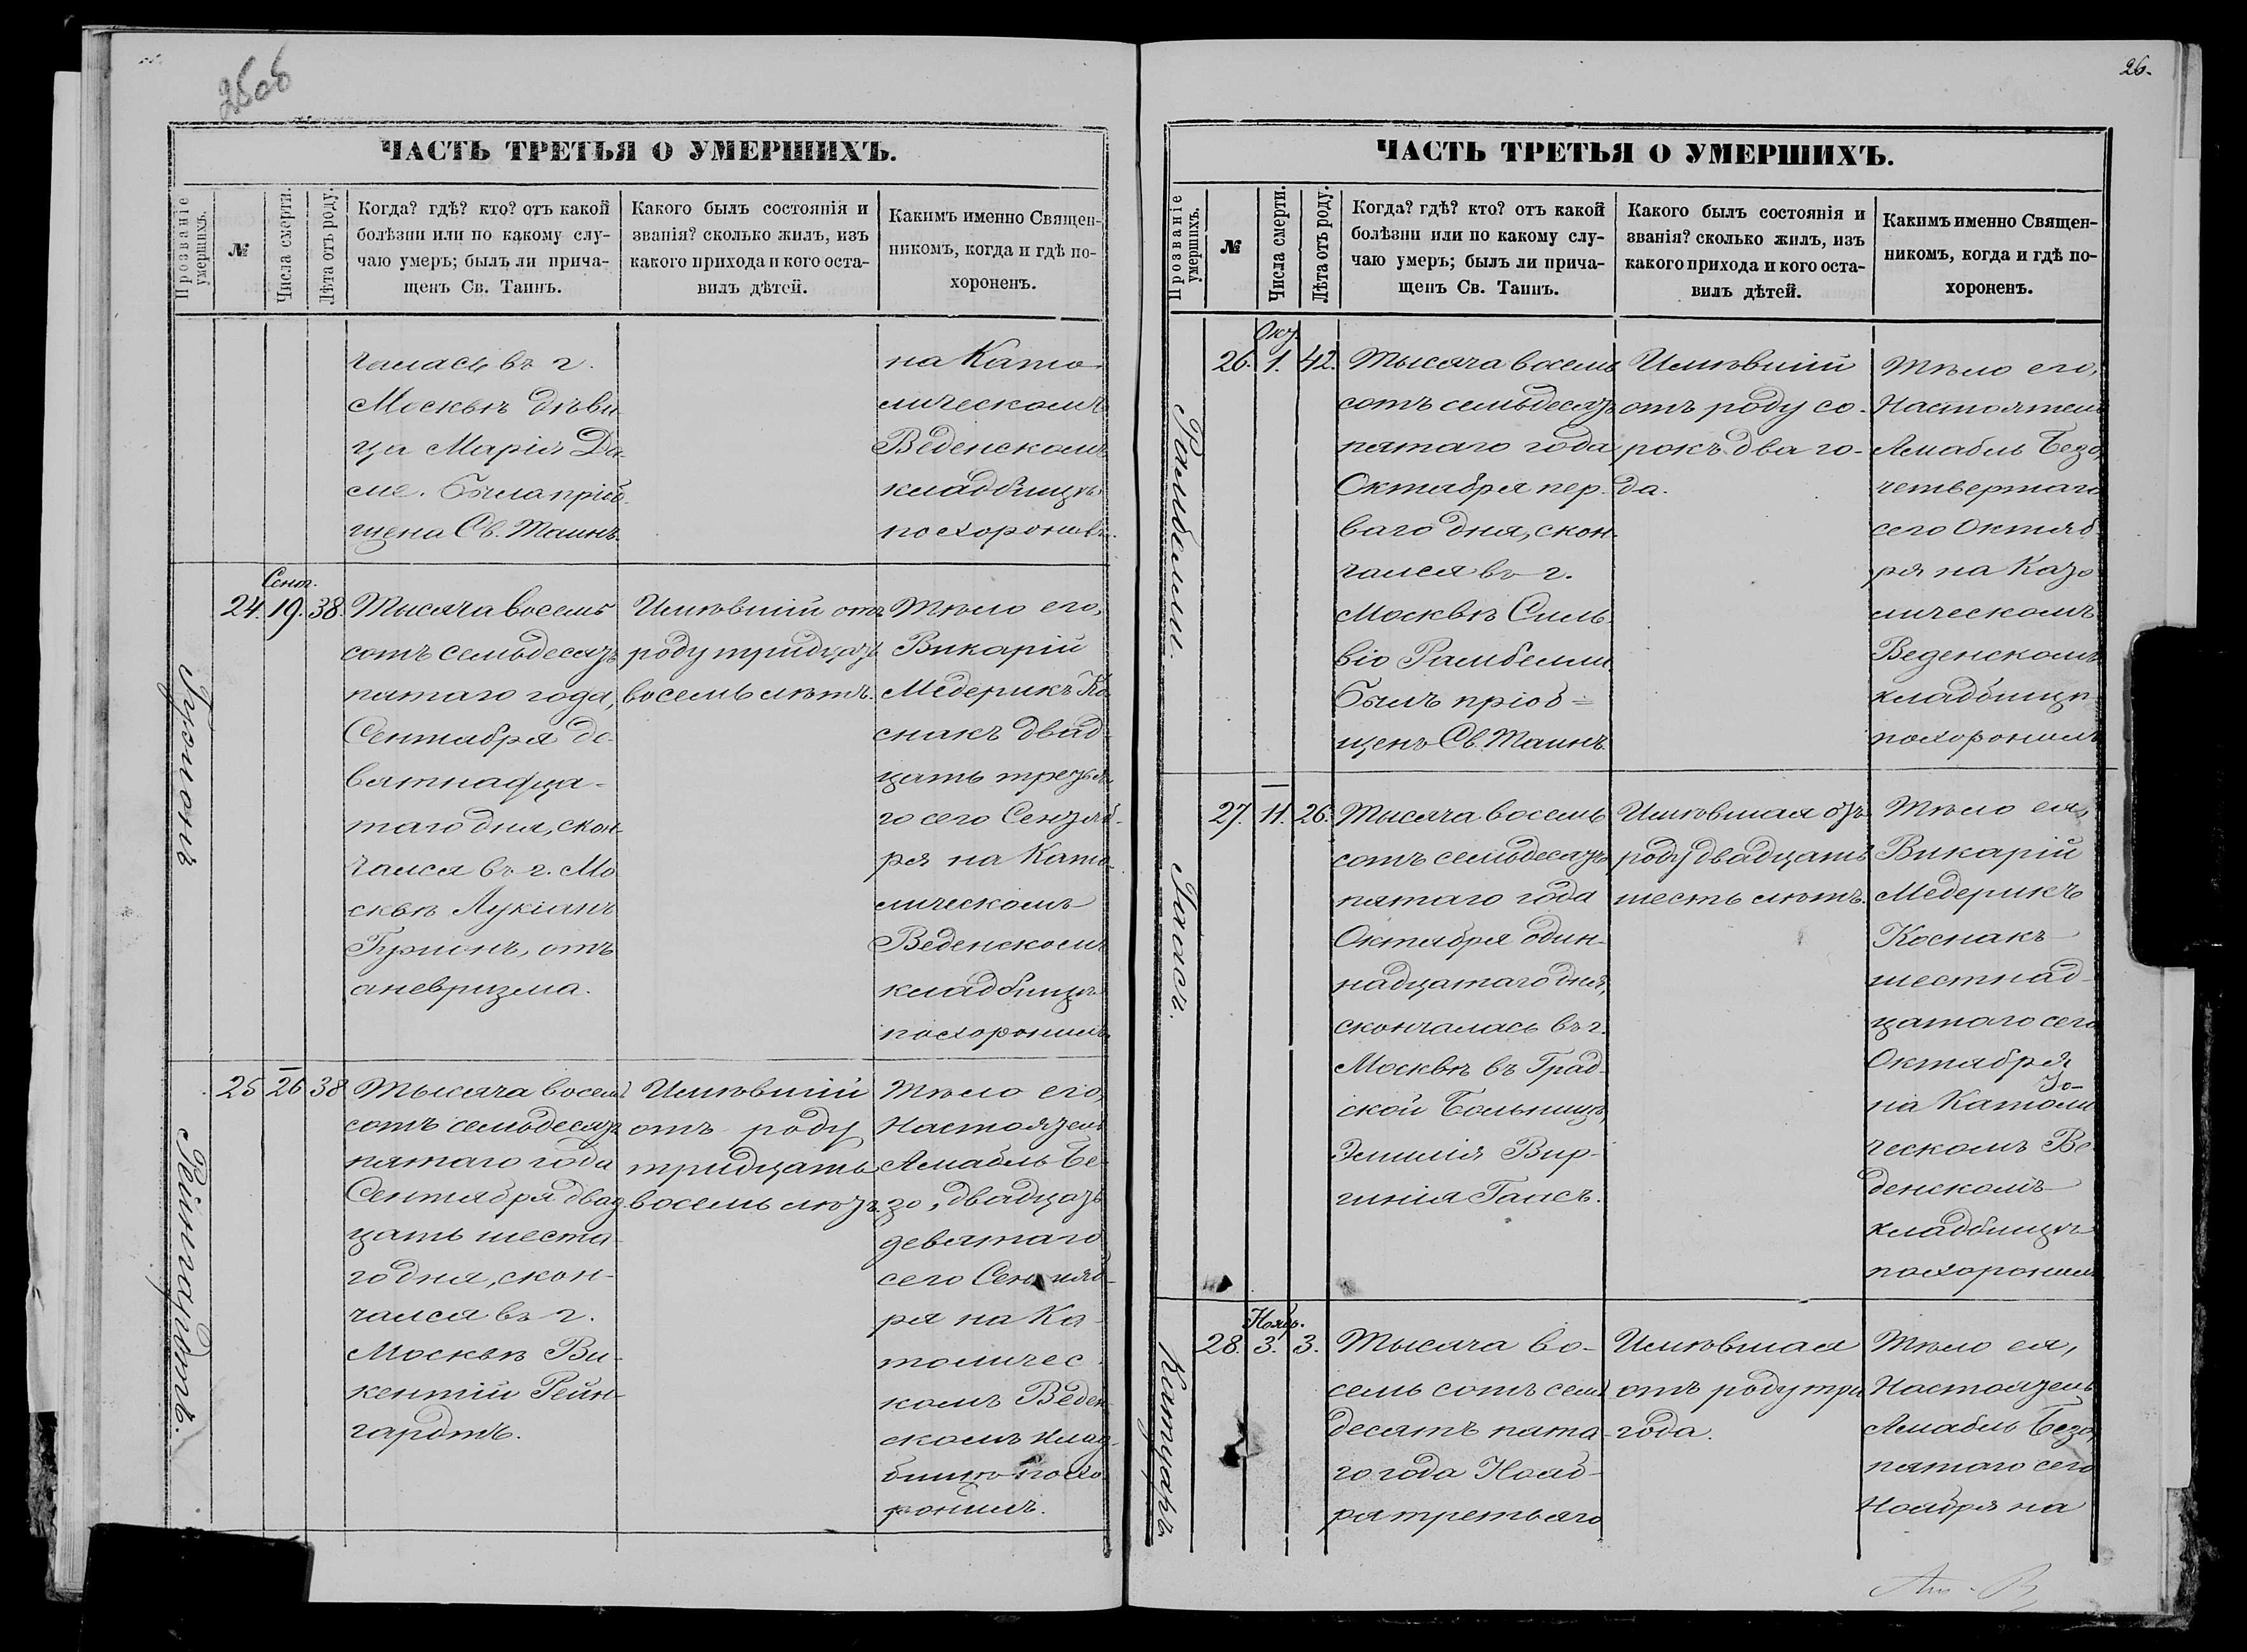 25об
ЧАСТЬ ТРЕТЬЯ О УМЕРШИХЪ.
Прозваніе умершихъ.
№
Числа смерти.
Лѣта отъ роду.
Когда? гдѣ? кто? отъ какой
болѣзни или по какому слу-
чаю умеръ; былъ ли прича-
щенъ Св. Таинъ.
Какого былъ состоянія и
званія? сколько жилъ, изъ
какого прихода и кого оста-
вилъ дѣтей.
Какимъ именно Священ-
никомъ, когда и гдѣ по-
хороненъ.
чалась въ г.
Москвѣ дѣви
ца Марія Да
ме. Была пріоб
щена Св. Таинъ.
на Като
лическомъ
Веденскомъ
кладбищѣ
похоронилъ.
Гурмонъ
Сент.
24. 19. 38.
Тысяча восемь
сотъ семьдесятъ
пятаго года,
Сентября де-
вятнадца-
таго дня, скон-
чался въ г. Мо
сквѣ Лукіанъ
Гурмонъ, отъ
аневризма.
Имѣвшій отъ
роду тридцать
восемь лѣтъ.
Тѣло его,
Викарій
Медерикъ Ко
снакъ двад-
цать третья
го сего Сентяб-
ря на Като-
лическомъ
Веденскомъ
кладбищѣ
похоронилъ.
Рейнгардтъ.
25 26 38
Тысяча восемь
сотъ семьдесятъ
пятаго года
Сентября двад
цать шеста-
го дня, скон-
чался въ г.
Москвѣ Ви-
кентій Рейн-
гардтъ.
Имѣвшій
отъ роду
тридцать
восемь лѣтъ.
Тѣло его,
Настоятель
Амабль Бе-
зо, двадцать
девятаго
сего Сентяб-
ря на Ка-
толичес-
комъ Веден
скомъ клад-
бищѣ похо
ронилъ.
26.
ЧАСТЬ ТРЕТЬЯ О УМЕРШИХЪ.
Прозваніе умершихъ.
№
Числа смерти.
Лѣта отъ роду.
Когда? гдѣ? кто? отъ какой
болѣзни или по какому слу-
чаю умеръ; былъ ли прича-
щенъ Св. Таинъ.
Какого былъ состоянія и
званія? сколько жилъ, изъ
какого прихода и кого оста-
вилъ дѣтей.
Какимъ именно Священ-
никомъ, когда и гдѣ по-
хороненъ.
Рамбелли.
Окт.
26. 1. 42.
Тысяча восемь
сотъ семьдесятъ
пятаго года,
Октября пер-
ваго дня, скон-
чался въ г.
Москвѣ Силь
віо Рамбелли
Былъ пріоб=
щенъ Св. Таинъ.
Имѣвшій
отъ роду со-
рокъ два го-
да.
Тѣло его,
Настоятель
Амабль Безо,
четвертаго
сего Октяб
ря на Като
лическомъ
Веденскомъ
кладбищѣ
похоронилъ
Гаасъ.
27. 11. 26.
Тысяча восемь
сотъ семьдесятъ
пятаго года
Октября один-
надцатаго дня,
скончалась въ г.
Москвѣ въ Град-
ской Больницѣ,
Эмилія Вир-
гинія Гаасъ.
Имѣвшая отъ
роду двадцать
шесть лѣтъ.
Тѣло ея,
Викарій
Медерикъ
Коснакъ
шестнад-
цатаго сего
Октября
на Католи
ческомъ Ве
денскомъ
кладбищѣ
похоронилъ
Катуаръ
Нояб.
28. 3. 3.
Тысяча во-
семь сотъ семь
десятъ пята-
го года Нояб-
ря третьяго
Имѣвшая
отъ роду три
года.
Тѣло ея,
Настоятель
Амабль Безо,
пятаго сего
Ноября на